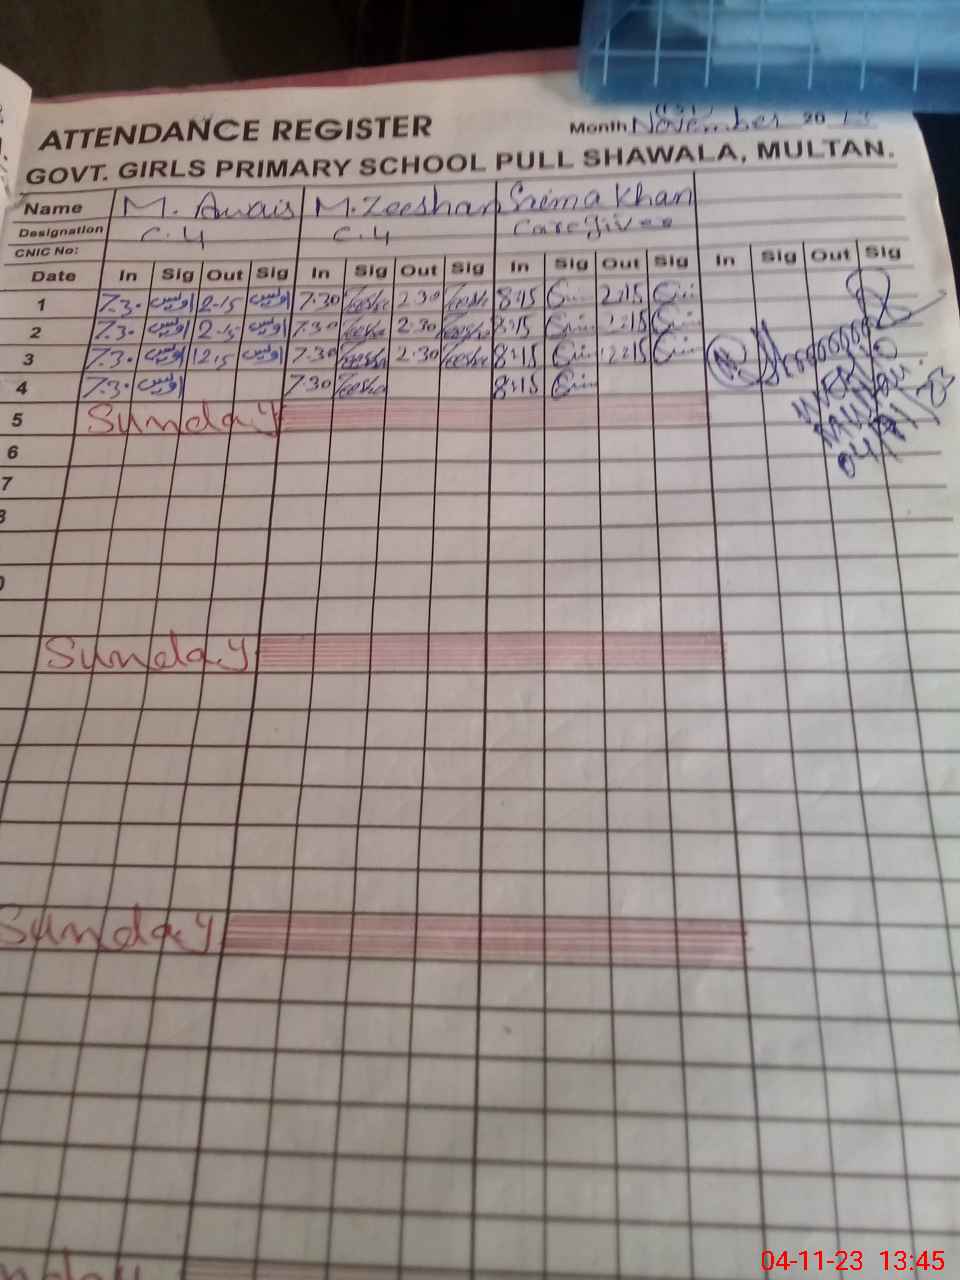 ATTENDANCE REGISTER
Month November 20
GOVT. GIRLS PRIMARY SCHOOL PULL SHAWALA, MULTAN.
Name M. Awais M. Zeeshan Saima Khan
Designation C.4 C.4 Caregiver
CNIC No:
Date In Sig Out Sig In Sig Out Sig In Sig Out Sig In Sig Out Sig
1 7.30 اویس 2-15 اویس 7:30 Zeesha 2:30 Zeesha 8:15 12:15
2 7.30 اویس اویس 7:30 Zeesha 2:30 Zeesha 8:15 12:15
3 7.30 اویس 12.15 اویس 7:30 Zeesha 2:30 Zeesha 8:15 12:15
4 7.30 اویس 7:30 Zeesha 8:15
5 Sunday
6
7
Sunday
Sunday
Multan.
04/11/23
04-11-23 13:45